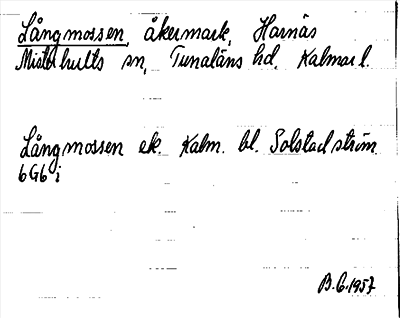 Långmossen, åkermark, Harnäs
Misterhults sn, Tunaläns hd. Kalmar l.
Långmossen ek. Kalm. bl. Solstadström
6G6i
B.G.1957